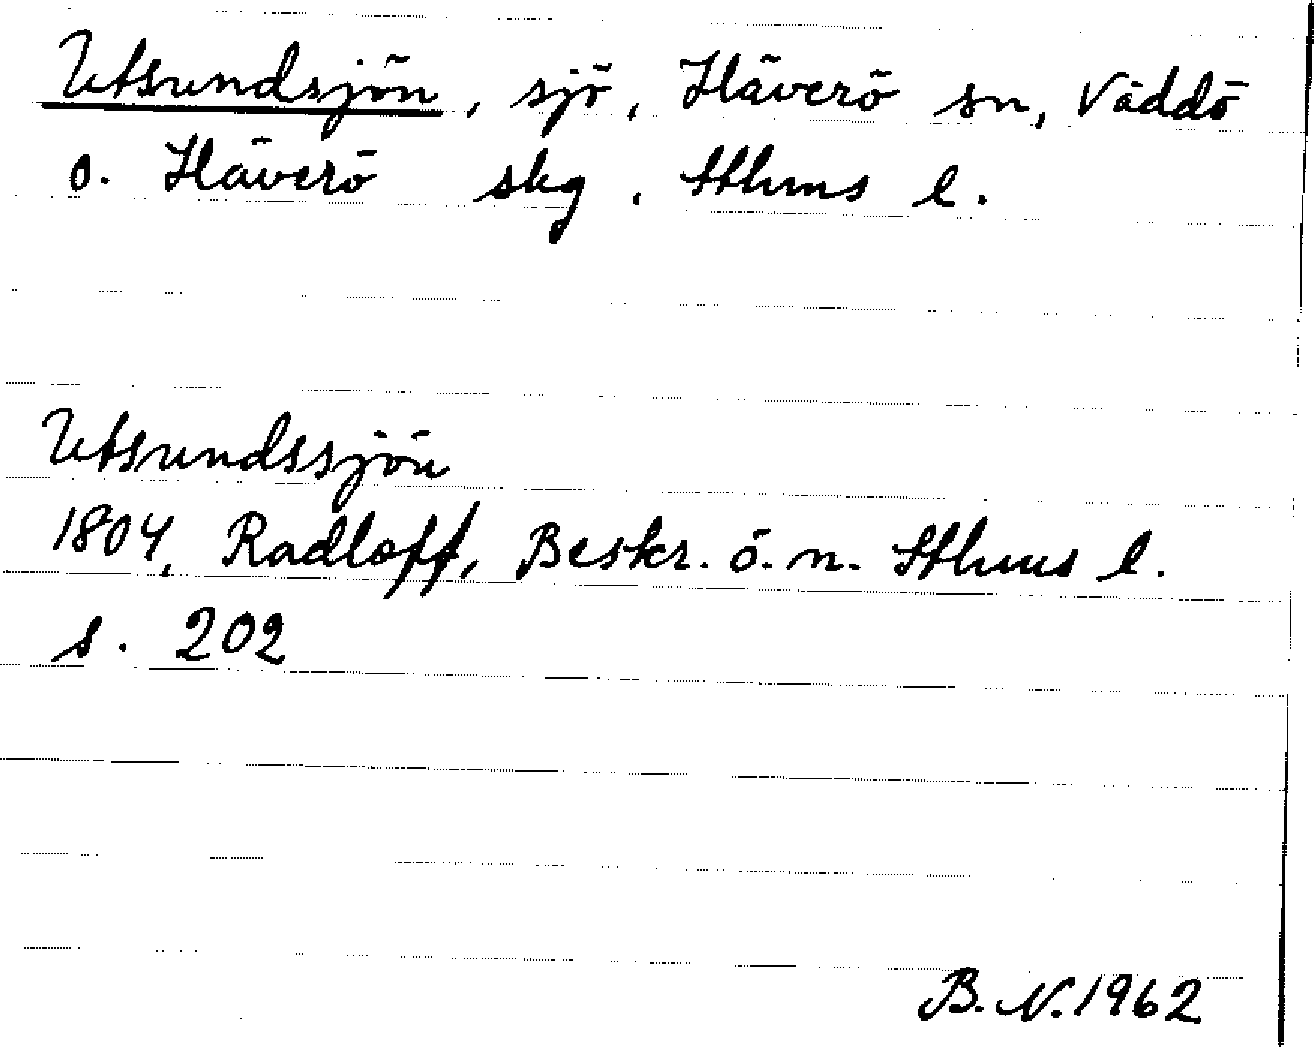 Utsundsjön, sjö, Häverö sn, Väddö
o. Häverö skg, Sthms l.
Utsundssjön
1804, Radloff, Beskr. ö. n. Sthms l.
s. 202
B. N. 1962